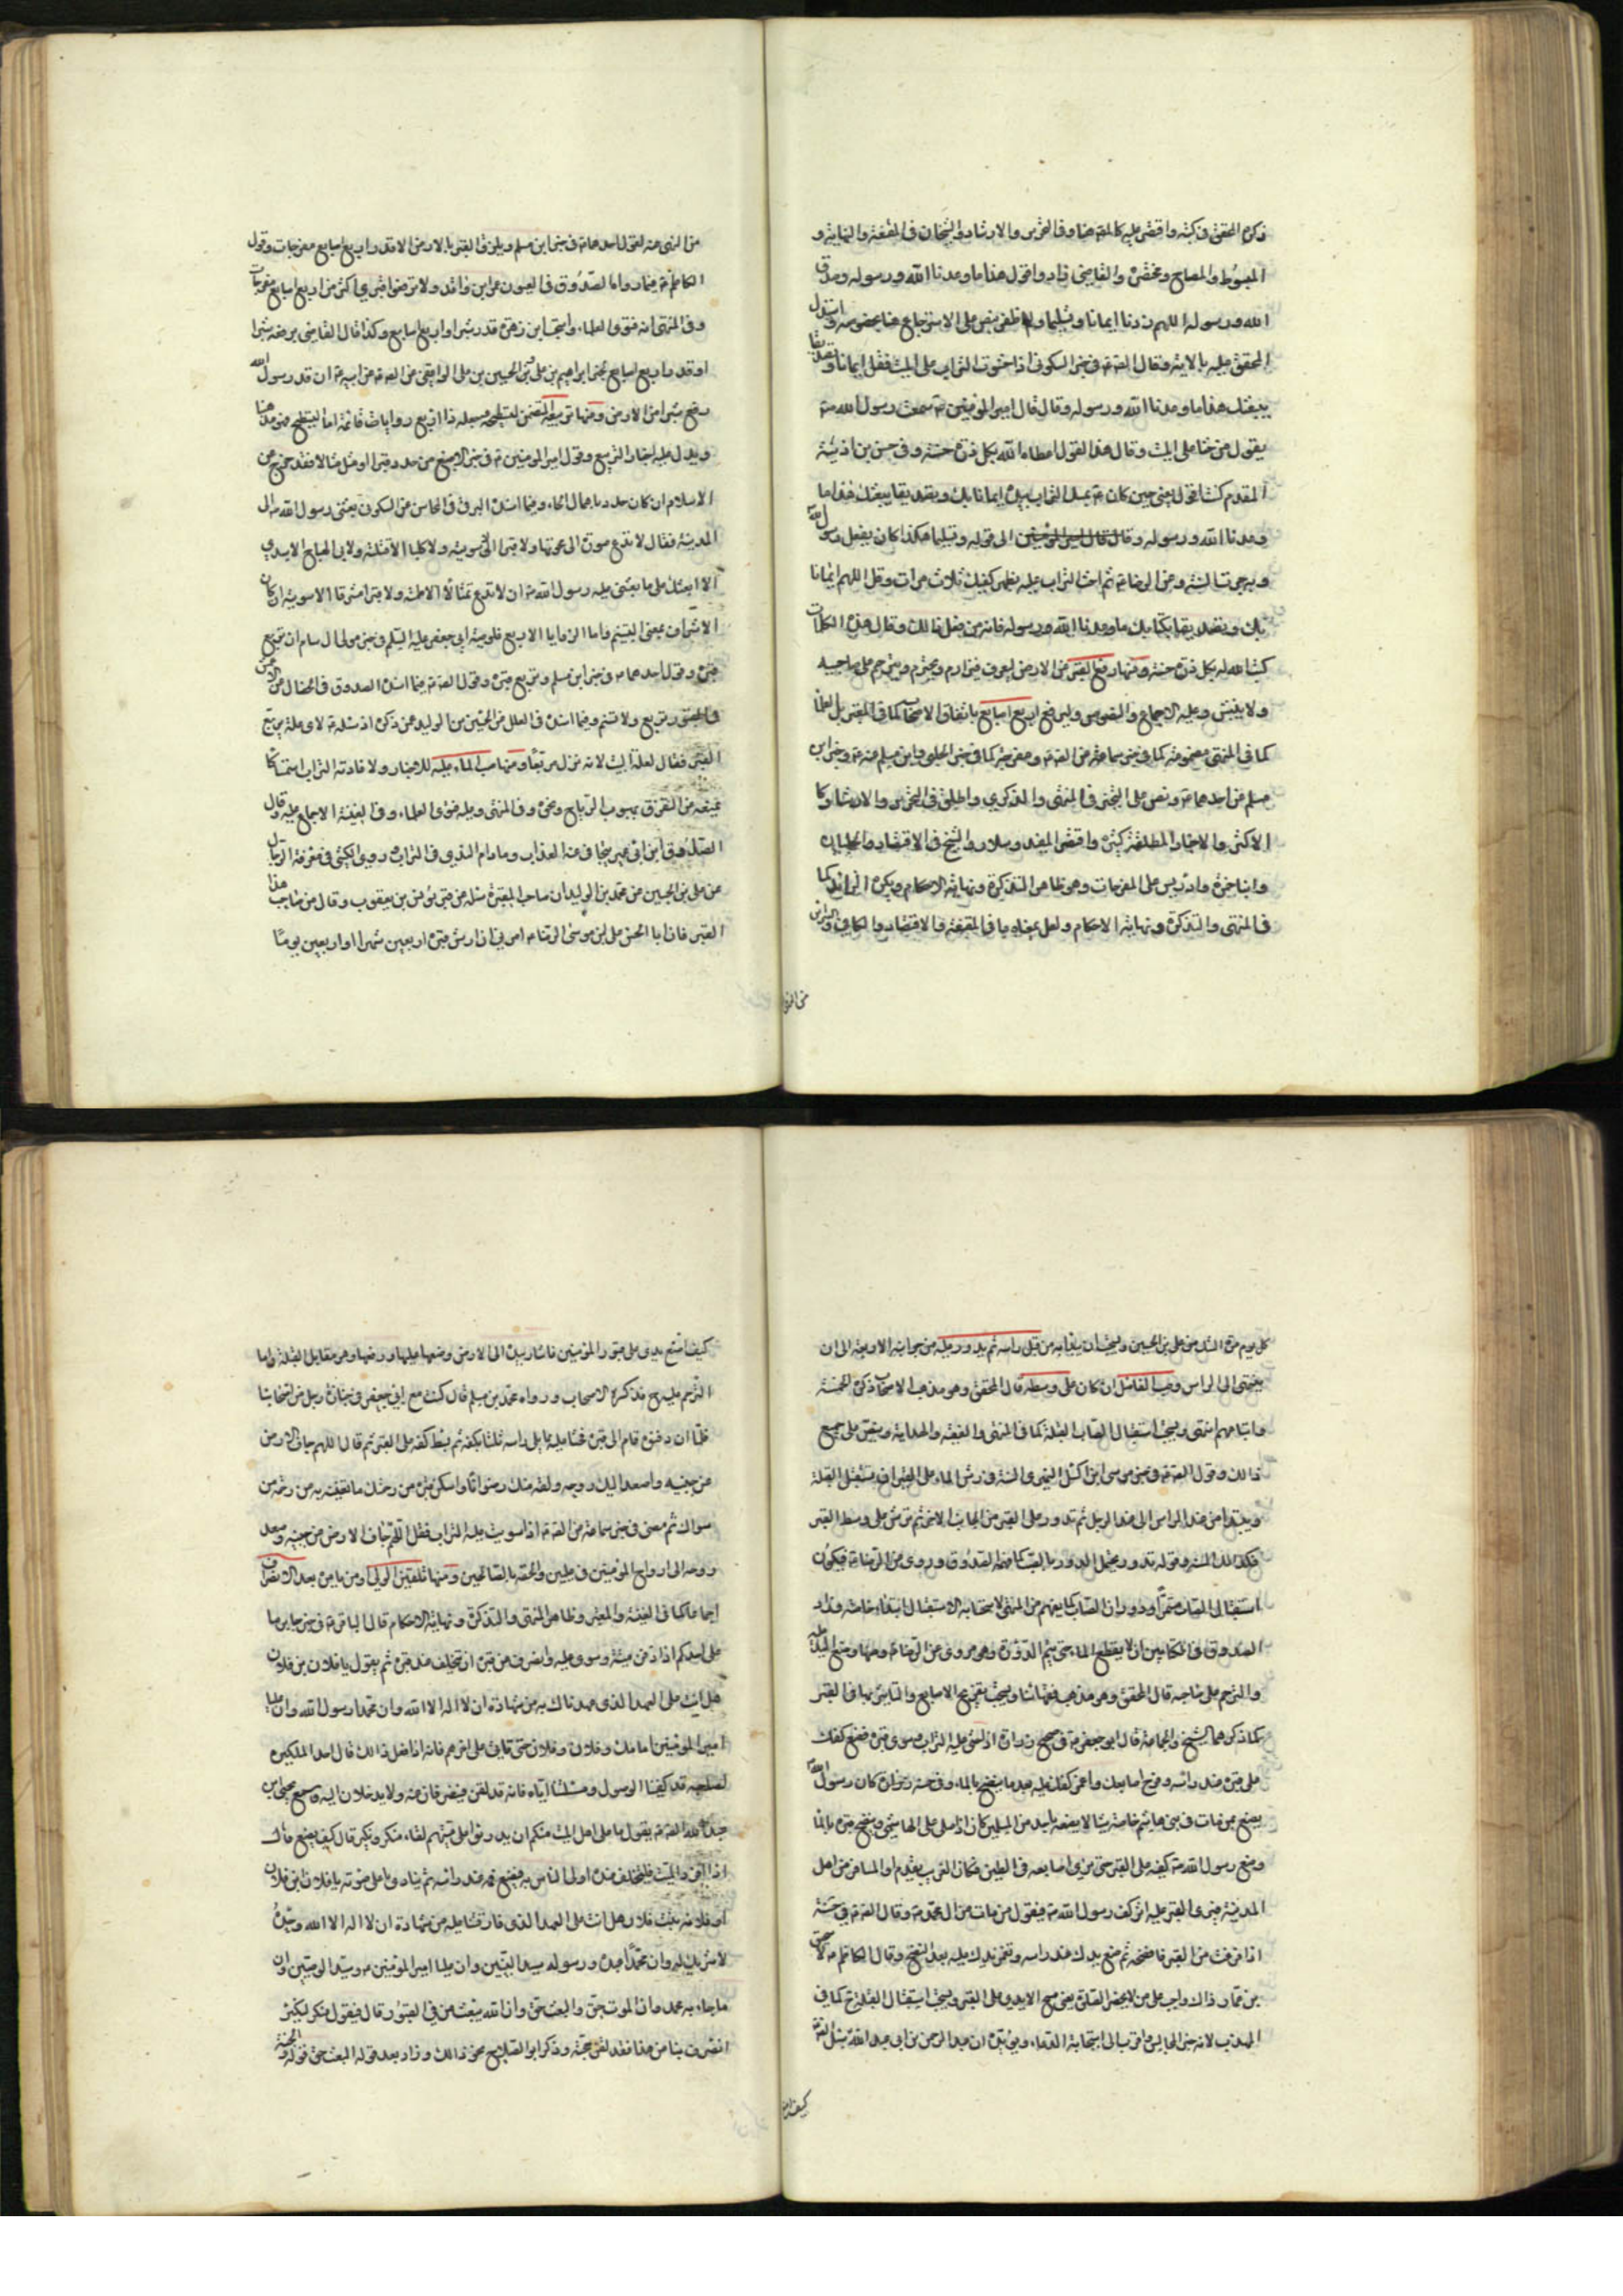 ذكره المحقق في كتبه واقتصر عليه كالمص هنا وفي التحرير والارشاد والشيخان في المقنعة والنهاية و
المبسوط والمصباح ومختصره والقاضي زادوا قول هذا ما وعدنا الله ورسوله وصدق
الله ورسوله اللهم زدنا ايمانا وتسليما ولم اظفر بنص على الاسترجاع هنا بخصوصه واستدل
المحقق عليه بالاية وقال الص ع في خبر السكوني اذا حثوت التراب على الميت فقل ايمانا وتصديقا
ببعثك هذا ما وعدنا الله ورسوله وقال قال امير المؤمنين ع سمعت رسول الله ص
يقول من حثا على الميت وقال هذا القول اعطاه الله بكل ذرة حسنة وفي حسن بن اذينة
المقدم كذا قول يعني حين كان ع يمسك التراب بيده ايمانا بك وتصديقا ببعثك هذا ما
وعدنا الله ورسوله وقال قال امير المؤمنين الى قوله وتسليما هكذا كان يفعل رسول الله
وبه جرت السنة وعن الرضا ع ثم احث التراب عليه بظهر كفيك ثلاث مرات وقل اللهم ايمانا
بك وتصديقا بكتابك ما وعدنا الله ورسوله فانه من فعل ذلك وقال هذه الكلمات
كتب الله له بكل ذرة حسنة ومنها رفع القبر من الارض ليعرف فيزار ويحترم ويترحم على صاحبه
ولا ينبش وعليه الاجماع والنصوص وليرفع اربع اصابع باتفاق الاصحاب كما في المعتبر بل العلماء
كما في المنتهى مضمومة كما في خبر سماعة عن الص ع ومفرجة كما في خبر الحلبي وابن مسلم عنه ع وخبر ابن
مسلم عن احدهما ع ونص على التخيير في المنتهى والذكرى واطلق في التحرير والارشاد كما
الاكثر والاخبار المطلقة كثيرة واقتصر المفيد وسلار والشيخ في الاقتصاد والحلبيان
وابنا حمزة وادريس على المفرجات وهو ظاهر التذكرة ونهاية الاحكام ويكره الزائد كما
في المنتهى والتذكرة ونهاية الاحكام ولعل بمعناه ما في المقنعة والاقتصاد والكافي والمراسم
من النهي
من النهي عنه لقول احدهما ع في خبر ابن مسلم ويلزق القبر بالارض الا قدر اربع اصابع مفرجات وقول
الكاظم ع فيما رواه الصدوق في العيون عن ابن واقد ولا ترفعوا قبري اكثر من اربع اصابع مفرجات
وفي المنتهى انه فتوى العلماء واستحب ابن زهرة قدر شبر او اربع اصابع وكذا قال القاضي يرفعه شبرا
او قدر اربع اصابع لخبر ابراهيم بن علي والحسين بن علي الرافقي عن الص ع عن ابيه ع ان قبر رسول الله
رفع شبرا من الارض ومنها تربيعه المتضمن لتسطيحه وجعله ذا اربع زوايا قائمة اما التسطيح فهو مذهبنا
ويدل عليه اخبار التربيع وقول امير المؤمنين ع في خبر الاصبغ من حدد قبرا او مثل مثالا فقد خرج من
الاسلام ان كان حدد باعمال الحاء وفيما اسنده البرقي في المحاسن عن السكوني بعثني رسول الله ص الى
المدينة فقال لا تدع صورة الا محوتها ولا قبرا الا سويته ولا كلبا الا قتلته ولابي الهياج الاسدي
الا ابعثك على ما بعثني عليه رسول الله ص ان لا تدع تمثالا الا طمسته ولا قبرا مشرفا الا سويته ان كان
الاشراف بمعنى التسنيم واما الزوايا الاربع فلوصية ابي جعفر عليه السلم في خبر مولى ال سام ان تربع
قبره وقول احدهما ع في خبر ابن مسلم وتربع قبره وقول الص ع فيما اسنده الصدوق في الخصال عن الاعمش
والقبور تربع ولا تسنم وفيما اسنده في العلل عن الحسين بن الوليد عمن ذكره اذ سئله ع لاي علة يربع
القبر فقال لعلة البيت لانه نزل مربعا ومنها صب الماء عليه للاخبار ولافادته التراب استمساكا
يمنعه من التفرق بهبوب الرياح ونحوه وفي المنتهى وعليه فتوى العلماء وفي الغنية الاجماع عليه وقال
الصادق ع لابن ابي عمير يتجافى عنه العذاب ما دام الندى في التراب وروى الكشي في معرفة الرجال
عن علي بن الحسين عن محمد بن الوليد ان صاحب المقبرة سئله عن قبر يونس بن يعقوب وقال من صاحب هذا
القبر فان ابا الحسن علي بن موسى الرضا ع امرني ان ارش قبره اربعين شهرا او اربعين يوما
كل يوم مرة الشك من علي بن الحسين ويستحب ان يبدا به من قبل راسه ثم يدور عليه من جوانبه الاربعة الى ان
ينتهي الى الراس وصب الفاضل ان كان على وسطه قال المحقق وهو مذهب الاصحاب ذكره الخمسة
واتباعهم انتهى ويستحب استقبال الصاب القبلة كما في المنتهى والفقيه والهداية وينص على جميع
ذلك وقول الص ع في خبر موسى ابن اكيل النميري السنة في رش الماء على القبر ان يستقبل القبلة
ويبتدا من عند الراس الى عند الرجل ثم تدور على القبر من الجانب الاخر ثم ترش على وسط القبر
فكذلك السنة وقوله تدور يحتمل الدور بالصب كما فهمه الصدوق وروى عن الرضا ع فيكون
استقبال القبلة مستمرا ودوران الصاب كما يفهم من المنتهى لاستحبابه الاستقبال ابتداء خاصة وزاد
الصدوق في الكتابين ان لا يقطع الماء حتى يتم الدورة وهو مروي عن الرضا ع ومنها وضع اليد عليه
والترحم على صاحبه قال المحقق وهو مذهب فقهائنا ويستحب تفريج الاصابع والتاثير بها في القبر
كما ذكرهما الشيخ والجماعة قال ابو جعفر ع في صحيح زرارة اذا حثي عليه التراب وسوى قبره فضع كفك
على قبره عند راسه وفرج اصابعك واغمز كفك عليه بعد ما ينضح بالماء وفي حسنة زرارة كان رسول الله
يصنع بمن مات من بني هاشم خاصة شيئا لا يصنعه باحد من المسلمين كان اذا صلى على الهاشمي ونضح قبره بالماء
وضع رسول الله ص كفه على القبر حتى يرى اصابعه في الطين فكان الغريب يقدم او المسافر من اهل
المدينة فيرى القبر عليه اثر كف رسول الله ص فيقول من مات من ال محمد ص وقال الص ع في حسنة
اذا فرغت من القبر فانضحه ثم ضع يدك عند راسه وتغمز يدك عليه بعد النضح وقال الكاظم ع لاسحق
بن عمار ذلك واجب على من لا يحضر الصلاة يعني مسح الايدي على القبر ويستحب استقبال القبلة ح كما في
المهذب لانه خير المجالس واقرب الى استجابة الدعاء ويؤيده ان عبد الرحمن بن ابي عبد الله سئل الص ع
كيف اضع
كيف اضع يدي على قبور المؤمنين فاشار بيده الى الارض وضعها عليها ورفعها وهو مقابل القبلة واما
الترحم عليه ح فذكره الاصحاب ورواه محمد بن مسلم قال كنت مع ابي جعفر ع في جنازة رجل من اصحابنا
فلما ان دفنوه قام الى قبره فحثا عليه مما يلي راسه ثلثا بكفه ثم بسط كفه على القبر ثم قال اللهم جاف الارض
عن جنبيه واصعد اليك روحه ولقه منك رضوانا واسكن قبره من رحمتك ما تغنيه به من رحمة من
سواك ثم مضى وفي خبر سماعة عن الص ع اذا سويت عليه التراب فقل اللهم جاف الارض عن جنبيه وصعد
روحه الى ارواح المؤمنين في عليين والحقه بالصالحين ومنها تلقين الولي او من يامره بعد الانصراف
اجماعا كما في الغنية والمعتبر وظاهر المنتهى والتذكرة ونهاية الاحكام قال الباقر ع في خبر جابر ما
على احدكم اذا دفن ميته وسوى عليه وانصرف عن قبره ان يتخلف عند قبره ثم يقول يا فلان بن فلان
هل انت على العهد الذي عهدناك به من شهادة ان لا اله الا الله وان محمدا رسول الله وان عليا
امير المؤمنين امامك وفلان وفلان حتى تاتي على اخرهم فانه اذا فعل ذلك قال احد الملكين
لصاحبه قد كفينا الوصول ومسئلتنا اياه فانه قد لقن فينصرفان عنه ولا يدخلان اليه وسمع يحيى ابن
عبد الله الص ع يقول ما على اهل الميت منكم ان يدرؤا عن ميتهم لقاء منكر ونكير قال كيف يصنع قال
اذا افرد الميت فليتخلف عنده اولى الناس به فيضع فمه عند راسه ثم ينادي باعلى صوته يا فلان بن فلان
او فلانة بنت فلان هل انت على العهد الذي فارقتنا عليه من شهادة ان لا اله الا الله وحده
لا شريك له وان محمدا عبده ورسوله سيد النبيين وان عليا امير المؤمنين ع وسيد الوصيين وان
ما جاء به محمد وان الموت حق والبعث حق وان الله يبعث من في القبور وقال فيقول منكر لنكير
انصرف بنا عن هذا فقد لقن حجته وذكر ابو الصلاح نحو ذلك وزاد بعد قوله البعث حق قوله والجنة